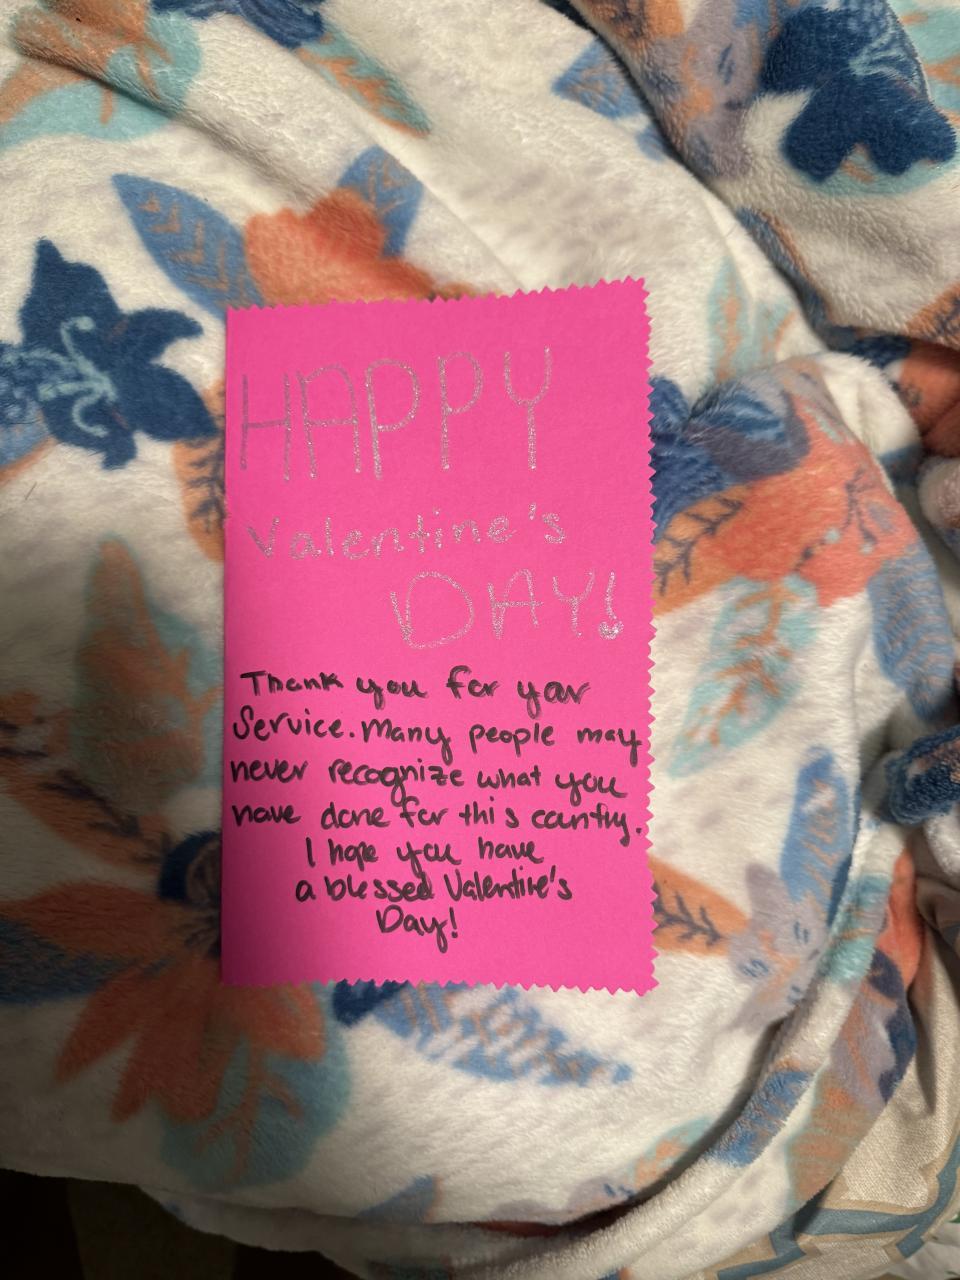 HAPPY
Valentine's
DAY!
Thank you for your
Service. Many people may
never recognize what you
have done for this country.
I hope you have
a blessed Valentine's
Day!